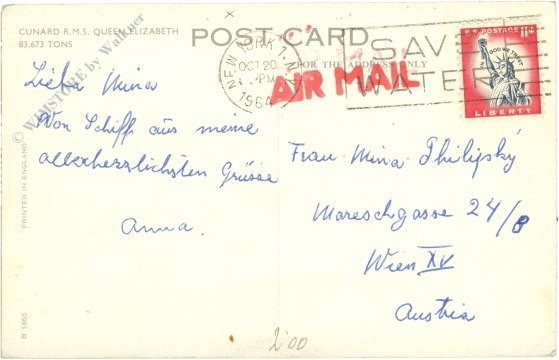 CUNARD R.M.S. QUEEN ELIZABETH
83,673 TONS
POST CARD
FOR THE ADDRESS ONLY
AIR MAIL
NEW YORK, N.Y.
OCT 20
PM
1964
SAVE
WATER
U.S. POSTAGE 11¢
IN GOD WE TRUST
LIBERTY
Lieba Mina
Von Schiff aus meine
allerherzlichsten Grüsse
Anna.
Frau Mina Philipsky
Mareschgasse 24/8
Wien XV
Austria
© WIMSTORE by Wallner
PRINTED IN ENGLAND
B 1865
2'00